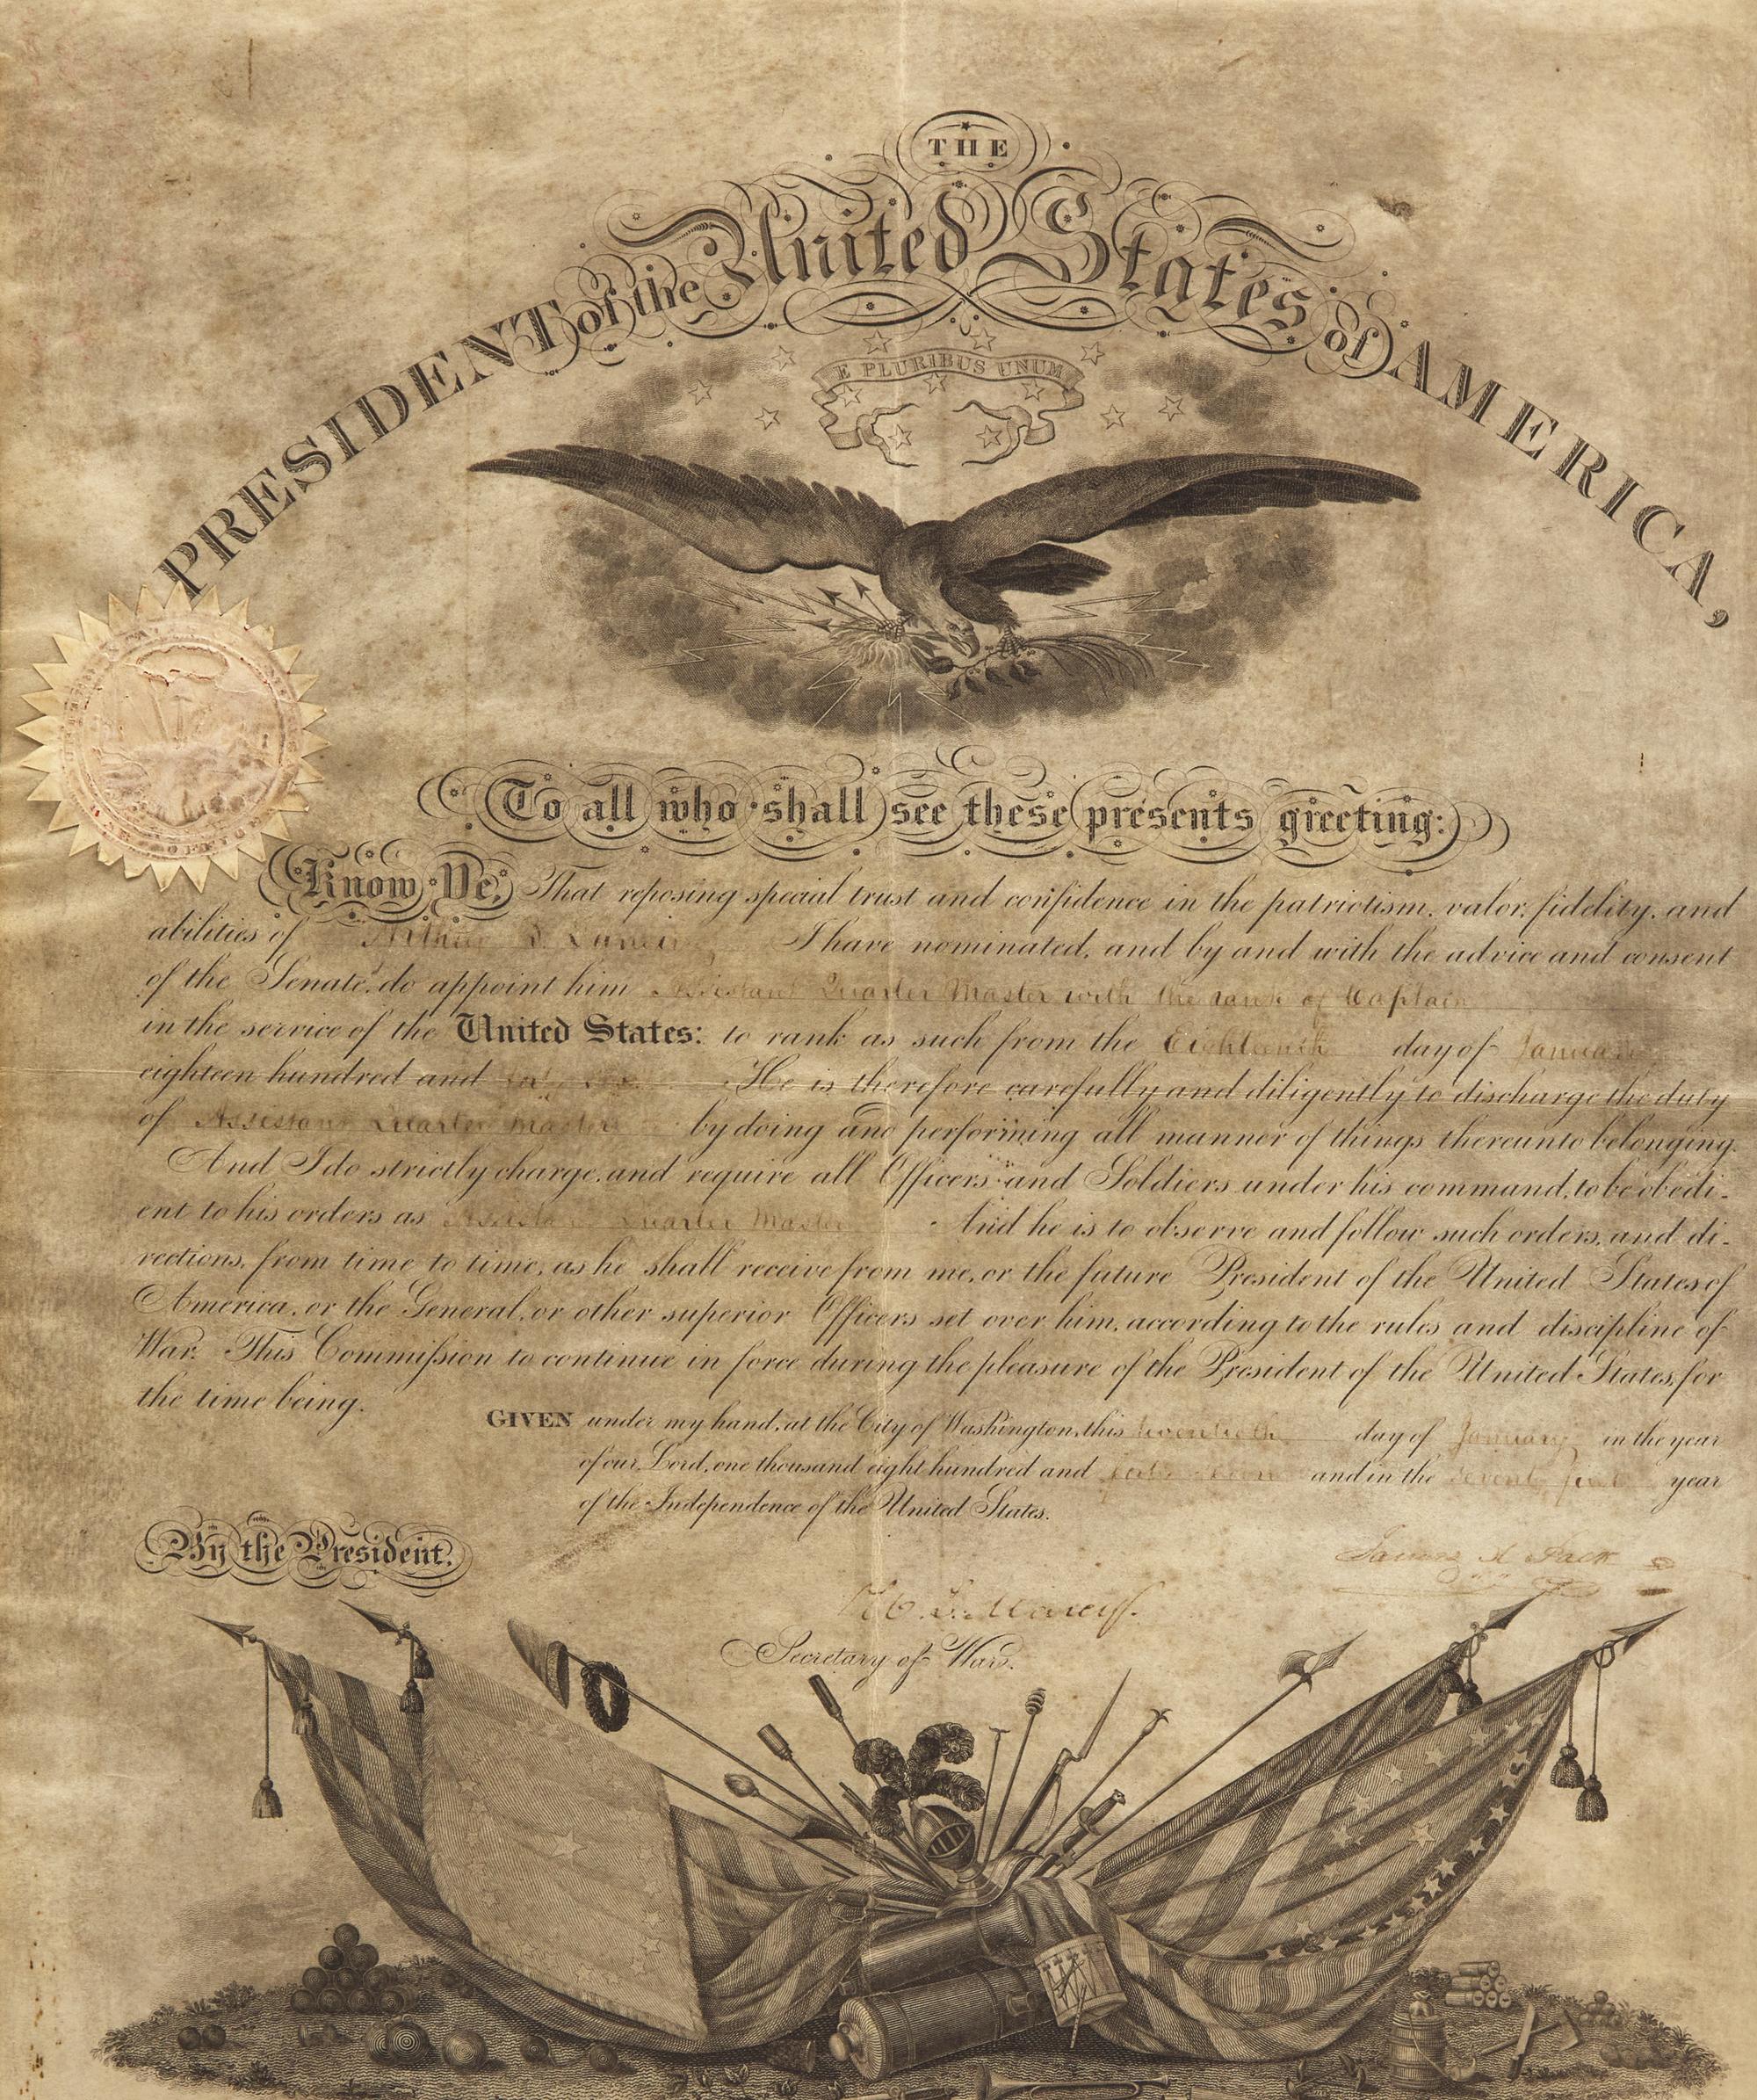 THE
PRESIDENT of the United States of AMERICA,
E PLURIBUS UNUM
To all who shall see these presents greeting:
Know Ye, That reposing special trust and confidence in the patriotism, valor, fidelity, and
abilities of Arthur I have nominated, and by and with the advice and consent
of the Senate, do appoint him Assistant Quarter Master with the rank of Captain
in the service of the United States: to rank as such from the Eighteenth day of January
eighteen hundred and He is therefore carefully and diligently to discharge the duty
of Assistant Quarter Master by doing and performing all manner of things thereunto belonging.
And I do strictly charge, and require all Officers and Soldiers under his command, to be obedi-
ent to his orders as Assistant Quarter Master And he is to observe and follow such orders, and di-
rections, from time to time, as he shall receive from me, or the future President of the United States of
America, or the General, or other superior Officers set over him, according to the rules and discipline of
War. This Commission to continue in force during the pleasure of the President of the United States, for
the time being.
GIVEN under my hand, at the City of Washington, this twentieth day of January in the year
of our Lord, one thousand eight hundred and forty seven and in the seventy first year
of the Independence of the United States.
By the President,
James K Polk
W. L. Marcy
Secretary of War.